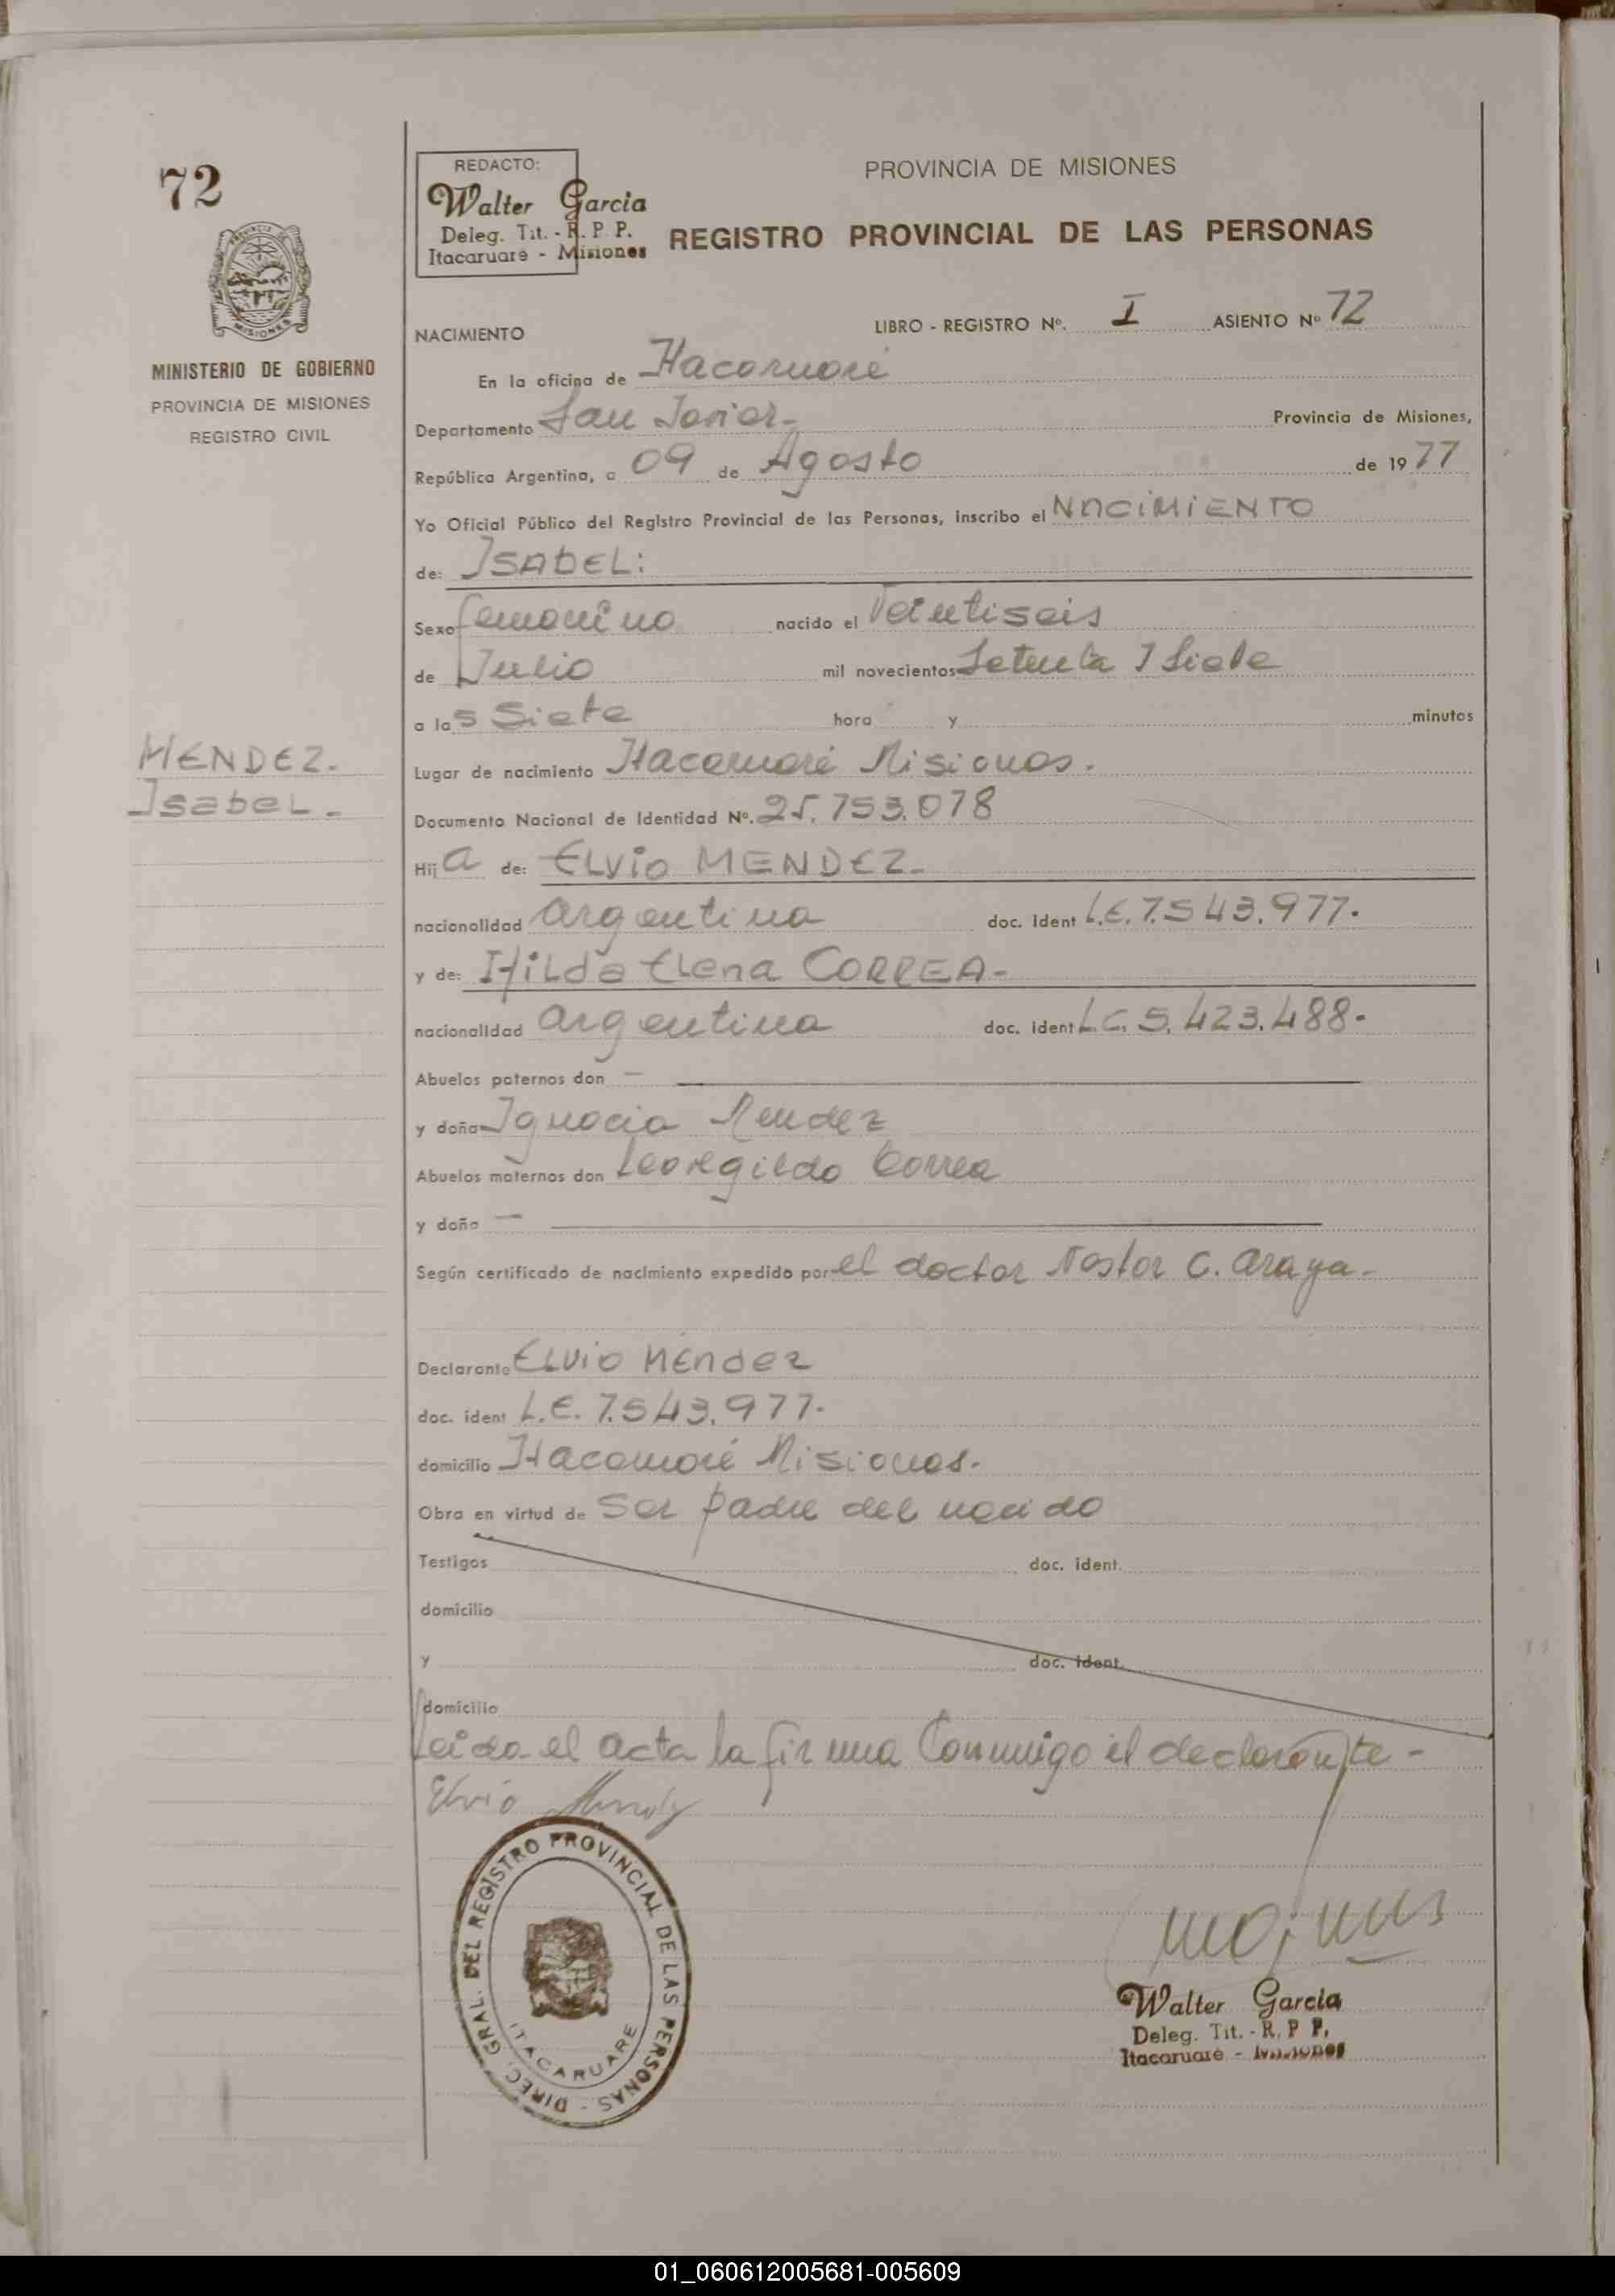 72
REDACTO:
Walter Garcia
Deleg. Tit. - R. P. P.
Itacaruaré - Misiones
PROVINCIA DE MISIONES
REGISTRO PROVINCIAL DE LAS PERSONAS
MISIONES
MINISTERIO DE GOBIERNO
PROVINCIA DE MISIONES
REGISTRO CIVIL
NACIMIENTO
LIBRO - REGISTRO Nº. I ASIENTO Nº 72
En la oficina de Itacaruaré
Departamento San Javier - Provincia de Misiones,
República Argentina, a 09 de Agosto de 1977
Yo Oficial Público del Registro Provincial de las Personas, inscribo el NACIMIENTO
de: ISABEL:
Sexo femenino nacido el Veintiseis
de Julio mil novecientos Setenta y Siete
a las Siete hora y minutos
MENDEZ.
Isabel.
Lugar de nacimiento Itacaruaré Misiones.
Documento Nacional de Identidad Nº. 25.753.078
Hija de: ELVIO MENDEZ-
nacionalidad argentina doc. ident L.E. 7.543.977.
y de: Hilda Elena CORREA-
nacionalidad argentina doc. ident L.C. 5.423.488-
Abuelos paternos don —
y doña Ignacia Mendez
Abuelos maternos don Leovegildo Correa
y doña —
Según certificado de nacimiento expedido por el doctor Nestor C. Araya-
Declarante Elvio Méndez
doc. ident L.E. 7.543.977.
domicilio Itacaruaré Misiones.
Obra en virtud de ser padre del nacido
Testigos doc. ident.
domicilio
y doc. ident.
domicilio
leida el acta la firma conmigo el declarante -
Elvio Mendez
DIREC. GRAL. DEL REGISTRO PROVINCIAL DE LAS PERSONAS -
ITACARUARE
Walter Garcia
Deleg. Tit. - R. P. P.
Itacaruaré - Misiones
01_060612005681-005609